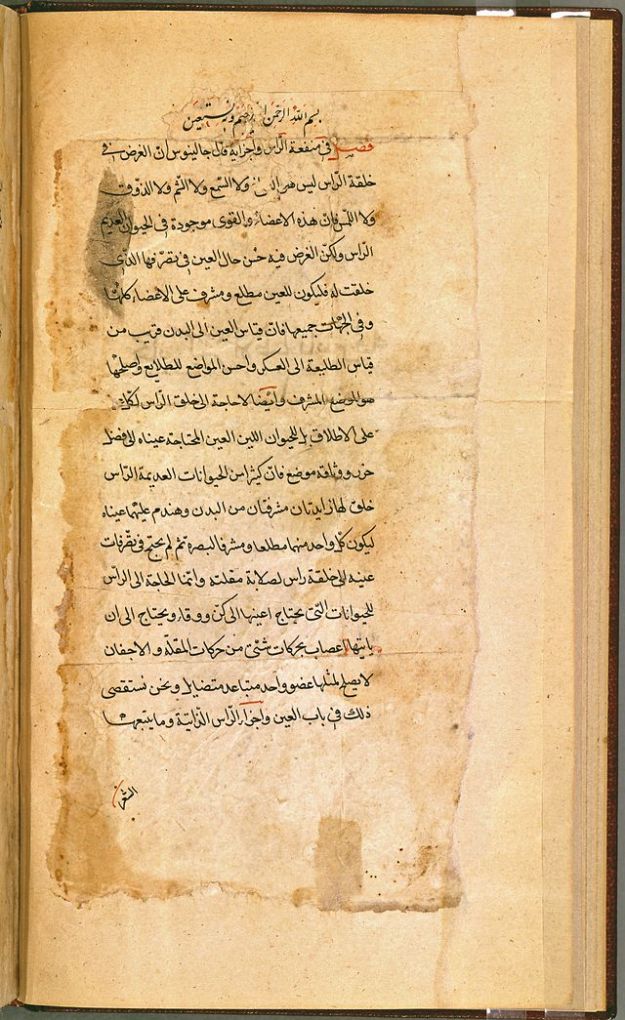 بسم الله الرحمن الرحيم وبه نستعين
فصل في منفعة الرأس واجزايه قال جالينوس ان الغرض في
خلقة الرأس ليس هو ولا السمع ولا الشم ولا الذوق
ولا اللمس فان هذه الاعضاء والقوى موجودة في الحيوان العديم
الرأس ولكن الغرض فيه حسن حال العين في تصرفها الذي
خلقت له فليكون للعين مطلع ومشرف على الاعضاء كلها
وفي الجهات جميعها فان قياس العين الى البدن قريب من
قياس الطليعة الى العسكر واحسن المواضع للطلايع واصلحها
هو الموضع المشرف وايضا لا حاجة الى خلق الرأس لكل
على الاطلاق بل للحيوان اللين العين المحتاجة عيناه الى فضل
حرز ووثاقة موضع فان كثيرا من الحيوانات العديمة الرأس
خلق لها زايدتان مشرفتان من البدن وهندم عليهما عيناه
ليكون لكل واحد منهما مطلعا ومشرفا لبصره ثم لم يحتج في تصرفات
عينه الى خلقة رأس لصلابة مقلته وانما الحاجة الى الرأس
للحيوانات التي يحتاج اعينها الى كن ووقاء ويحتاج الى ان
ياتيها اعصاب بحركات شتى من حركات المقلة والاجفان
لا يصلح لمثلها عضو واحد متباعد متضايل ونحن نستقصي
ذلك في باب العين واجزاء الرأس الذاتية وما يتبعها
الشعر